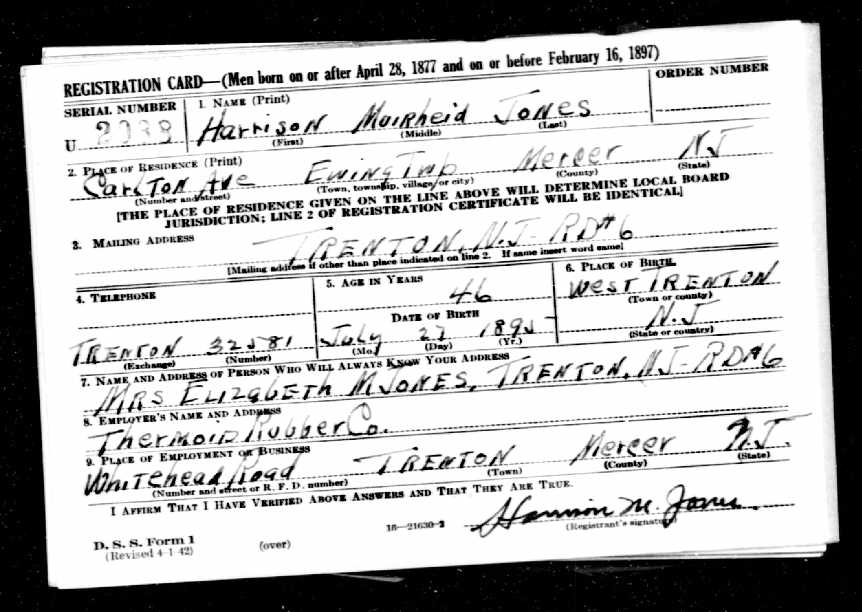 REGISTRATION CARD—(Men born on or after April 28, 1877 and on or before February 16, 1897)
SERIAL NUMBER
1. NAME (Print)
ORDER NUMBER
U
Harrison Muirheid Jones
(First) (Middle) (Last)
2. PLACE OF RESIDENCE (Print)
Carlton Ave Ewing Twp Mercer NJ
(Number and street) (Town, township, village, or city) (County) (State)
[THE PLACE OF RESIDENCE GIVEN ON THE LINE ABOVE WILL DETERMINE LOCAL BOARD
JURISDICTION; LINE 2 OF REGISTRATION CERTIFICATE WILL BE IDENTICAL]
3. MAILING ADDRESS
TRENTON, N.J. RD#6
[Mailing address if other than place indicated on line 2. If same insert word same]
4. TELEPHONE
5. AGE IN YEARS
6. PLACE OF BIRTH
46
WEST TRENTON
(Town or county)
DATE OF BIRTH
TRENTON 32581
July 27 1895
N.J
(Exchange) (Number)
(Mo.) (Day) (Yr.)
(State or country)
7. NAME AND ADDRESS OF PERSON WHO WILL ALWAYS KNOW YOUR ADDRESS
MRS ELIZABETH M JONES, TRENTON, NJ-RD#6
8. EMPLOYER'S NAME AND ADDRESS
Thermoid Rubber Co.
9. PLACE OF EMPLOYMENT OR BUSINESS
Whitehead Road TRENTON Mercer N.J.
(Number and street or R. F. D. number) (Town) (County) (State)
I AFFIRM THAT I HAVE VERIFIED ABOVE ANSWERS AND THAT THEY ARE TRUE.
Harrison M. Jones
(Registrant's signature)
D. S. S. Form 1
(Revised 4-1-42)
(over)
16—21630-2